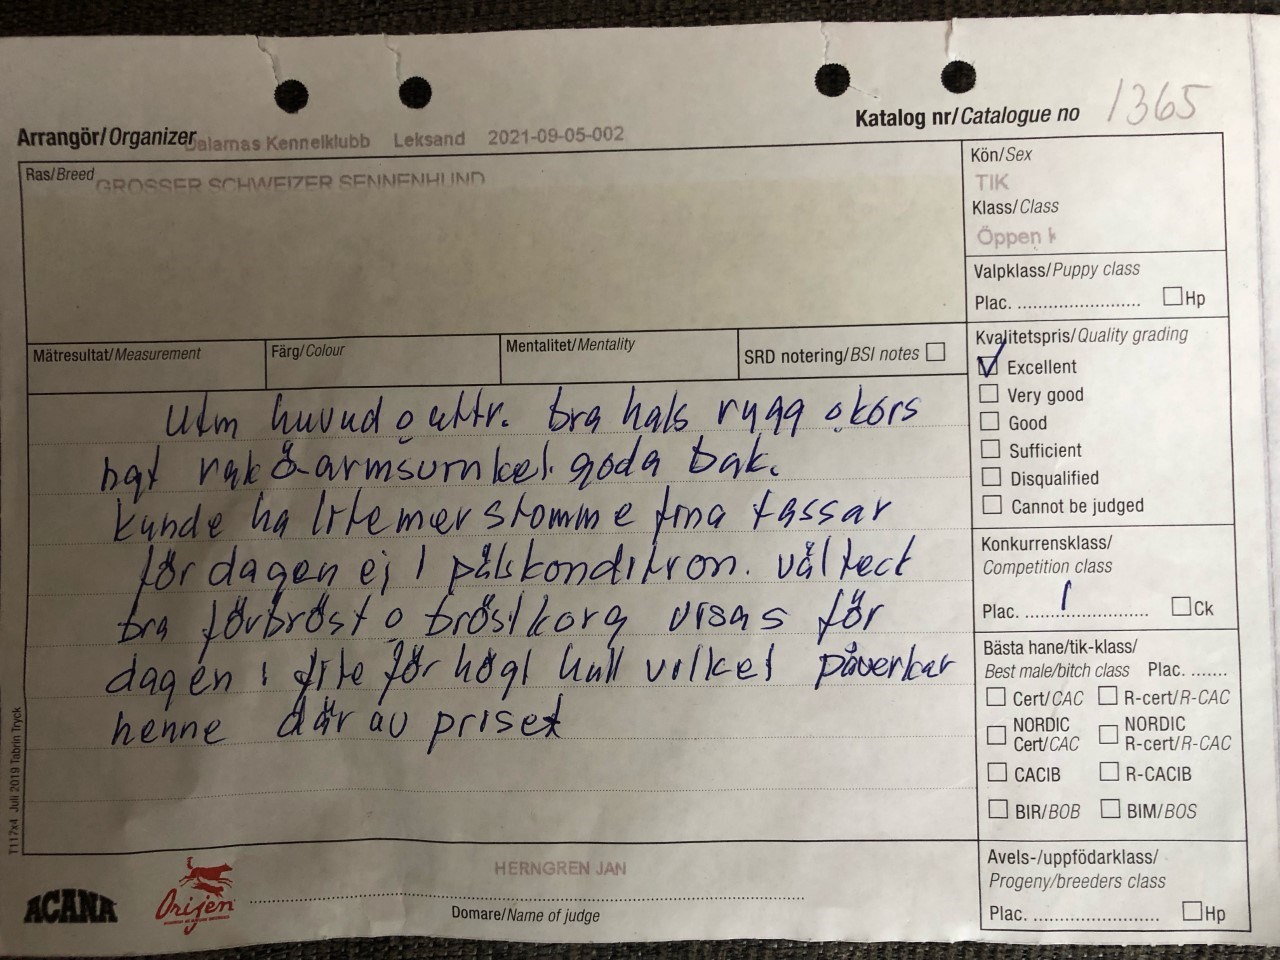 Katalog nr/Catalogue no 1365
Arrangör/Organizer Dalarnas Kennelklubb Leksand 2021-09-05-002
Ras/Breed GROSSER SCHWEIZER SENNENHUND
Kön/Sex
TIK
Klass/Class
Öppen k
Valpklass/Puppy class
Plac. ........................ Hp
Mätresultat/Measurement
Färg/Colour
Mentalitet/Mentality
SRD notering/BSI notes
Kvalitetspris/Quality grading
Excellent
Very good
Good
Sufficient
Disqualified
Cannot be judged
Utm huvud o uttr. bra hals rygg o kors
ngt rak ö-armsvinkel. goda bak.
kunde ha lite mer stomme fina tassar
för dagen ej i pälskondition. väl tect
bra förbröst o bröstkorg visas för
dagen i lite för högt hull vilket påverkar
henne där av priset
Konkurrensklass/
Competition class
Plac. 1 Ck
Bästa hane/tik-klass/
Best male/bitch class Plac. .......
Cert/CAC R-cert/R-CAC
NORDIC NORDIC
Cert/CAC R-cert/R-CAC
CACIB R-CACIB
BIR/BOB BIM/BOS
Avels-/uppfödarklass/
Progeny/breeders class
Plac. ........................ Hp
T117x4 Juli 2019 Tabrin Tryck
ACANA
Orijen
HERNGREN JAN
Domare/Name of judge